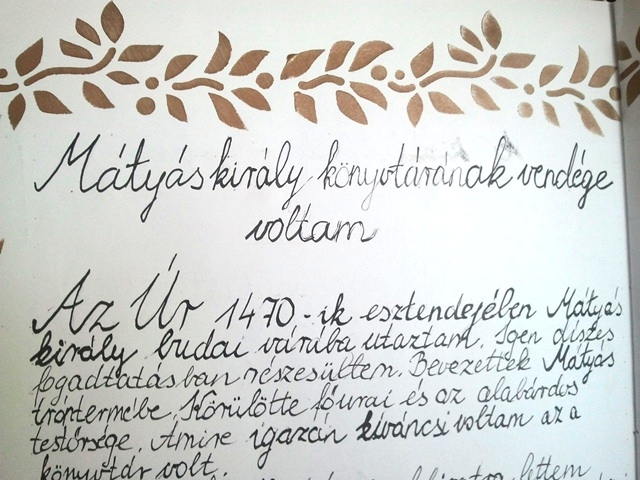 Mátyás király könyvtárának vendége
voltam
Az Úr 1470-ik esztendejében Mátyás
király budai várába utaztam. Igen díszes
fogadtatásban részesültem. Bevezettek Mátyás
tróntermébe. Körülötte főurai és az alabárdos
testőrsége. Amire igazán kíváncsi voltam az a
könyvtár volt.
lettem